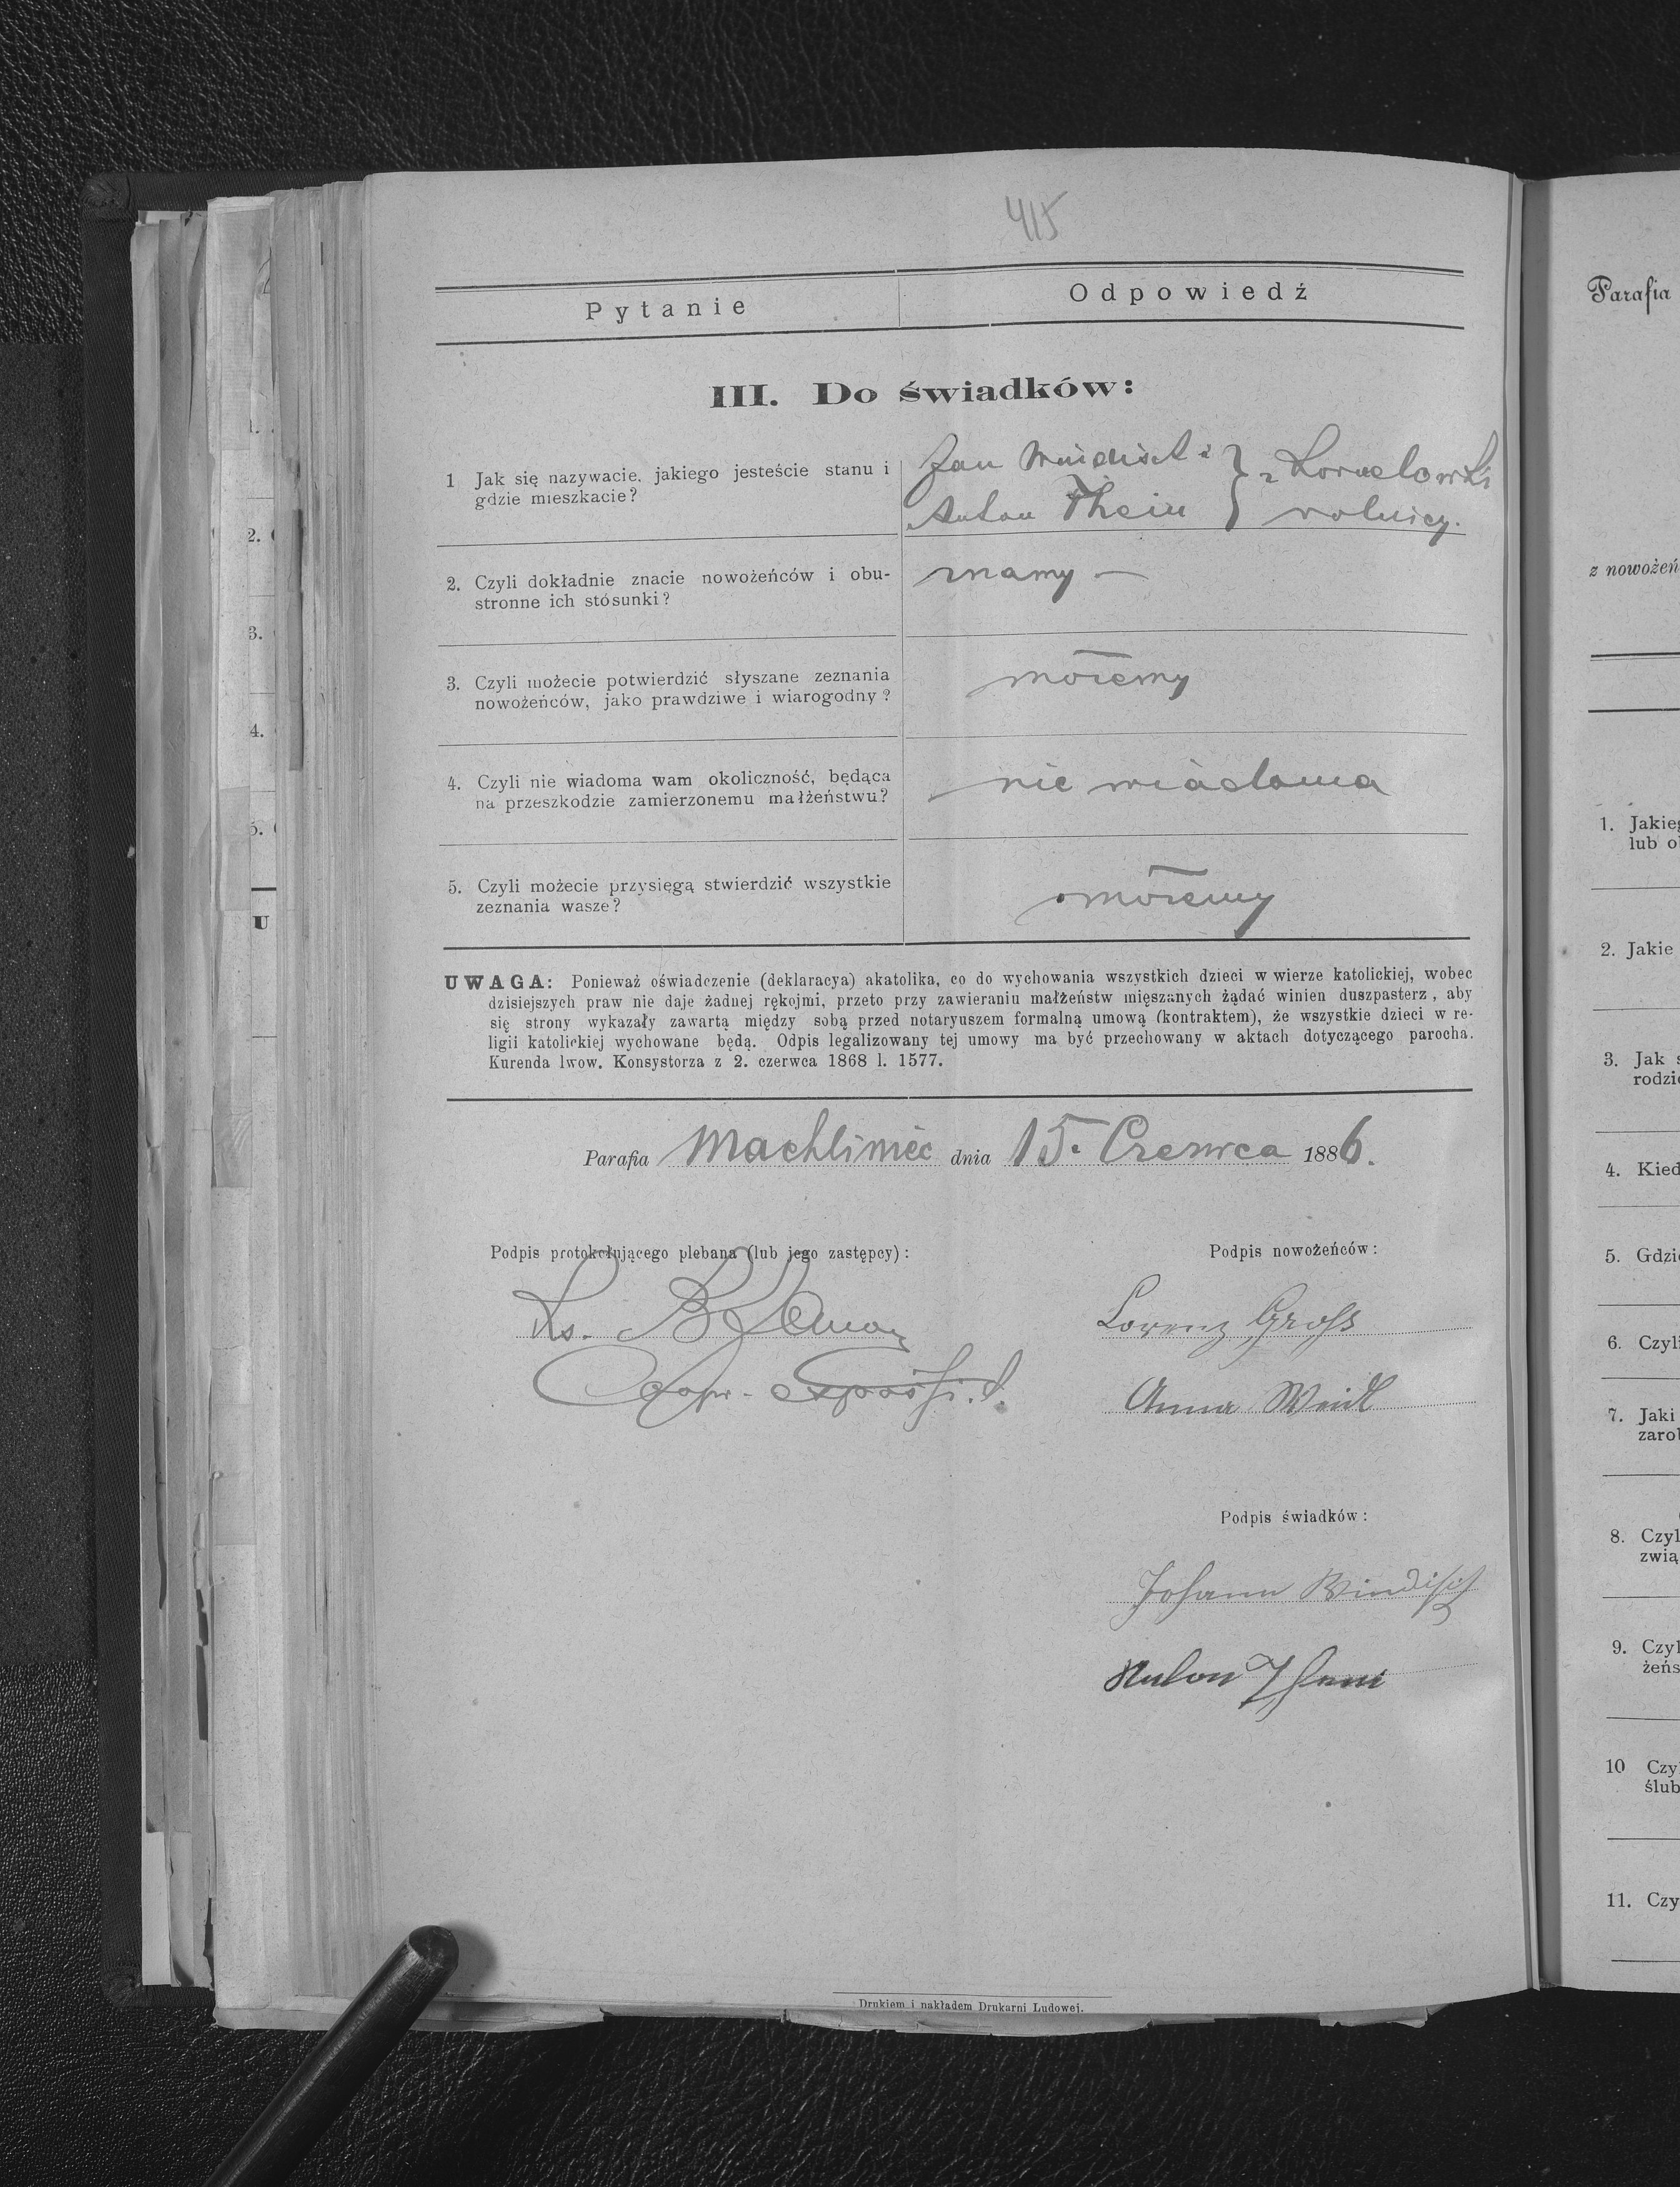 415
Pytanie
Odpowiedź
III. Do świadków:
1 Jak się nazywacie, jakiego jesteście stanu i
gdzie mieszkacie?
Jan Windisch i
Anton Thein
z Kornelowki
rolnicy.
2. Czyli dokładnie znacie nowożeńców i obu-
stronne ich stósunki?
znamy —
3. Czyli możecie potwierdzić słyszane zeznania
nowożeńców, jako prawdziwe i wiarogodny?
możemy
4. Czyli nie wiadoma wam okoliczność, będąca
na przeszkodzie zamierzonemu małżeństwu?
nie wiadoma
5. Czyli możecie przysięgą stwierdzić wszystkie
zeznania wasze?
możemy
UWAGA: Ponieważ oświadczenie (deklaracya) akatolika, co do wychowania wszystkich dzieci w wierze katolickiej, wobec
dzisiejszych praw nie daje żadnej rękojmi, przeto przy zawieraniu małżeństw mięszanych żądać winien duszpasterz, aby
się strony wykazały zawartą między sobą przed notaryuszem formalną umową (kontraktem), że wszystkie dzieci w re-
ligii katolickiej wychowane będą. Odpis legalizowany tej umowy ma być przechowany w aktach dotyczącego parocha.
Kurenda lwow. Konsystorza z 2. czerwca 1868 l. 1577.
Parafia Machliniec dnia 15. Czerwca 1886.
Podpis protokołującego plebana (lub jego zastępcy):
Ks.
Podpis nowożeńców:
Lorenz Groß
Anna Weidl
Podpis świadków:
Johann Windisch
Anton Thein
Drukiem i nakładem Drukarni Ludowej.
Parafia
z nowożeń
1. Jakieg
lub o
2. Jakie
3. Jak s
rodzi
4. Kied
5. Gdzi
6. Czyl
7. Jaki
zaro
8. Czyl
zwią
9. Czyl
żeńs
10 Czy
ślub
11. Czy
1.
2.
3.
4.
5.
U